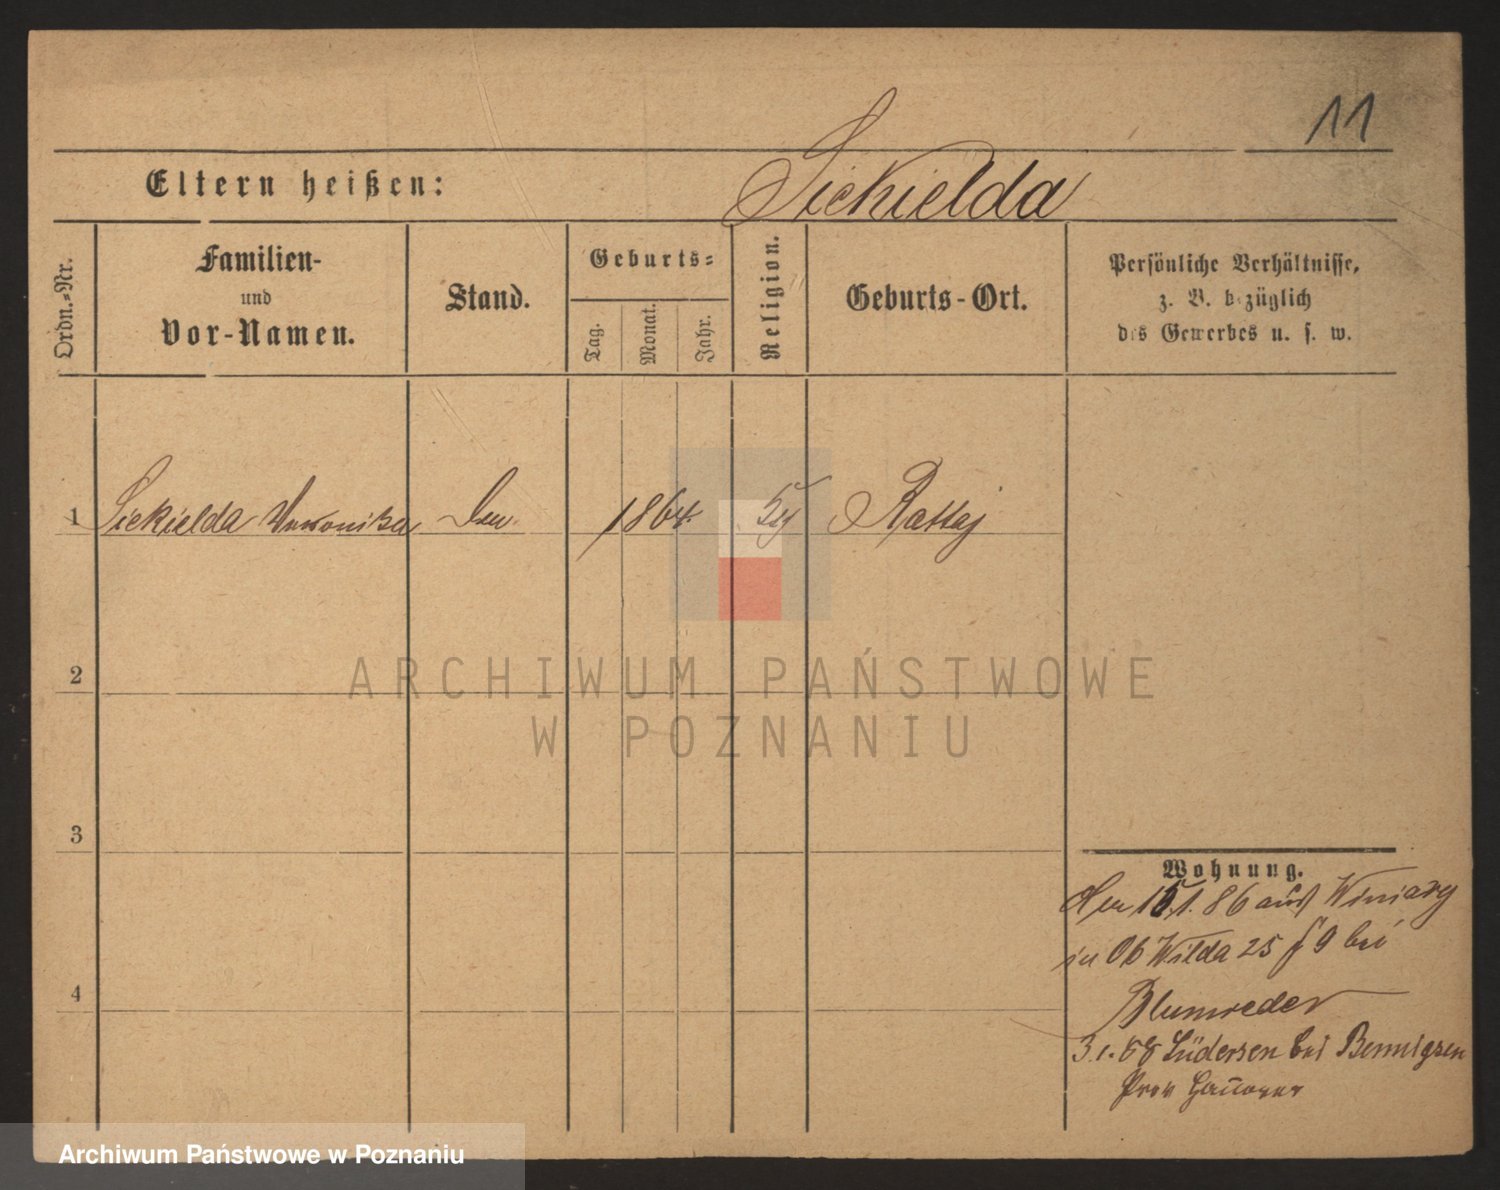 11
Eltern heißen: Siekielda
Ordn.=Nr.
Familien-
und
Vor-Namen.
Stand.
Geburts=
Tag.
Monat.
Jahr.
Religion.
Geburts-Ort.
Persönliche Verhältnisse,
z. B. bezüglich
des Gewerbes u. s. w.
1 Siekielda Veronika 1864 Rattaj
2
3
4
Wohnung.
1.86 aus Winiary
in Ob Wilda 25 9 bei
Blumreder
Lüdersen bei Bennigsen
Prov Hannover
ARCHIWUM PAŃSTWOWE
W POZNANIU
Archiwum Państwowe w Poznaniu